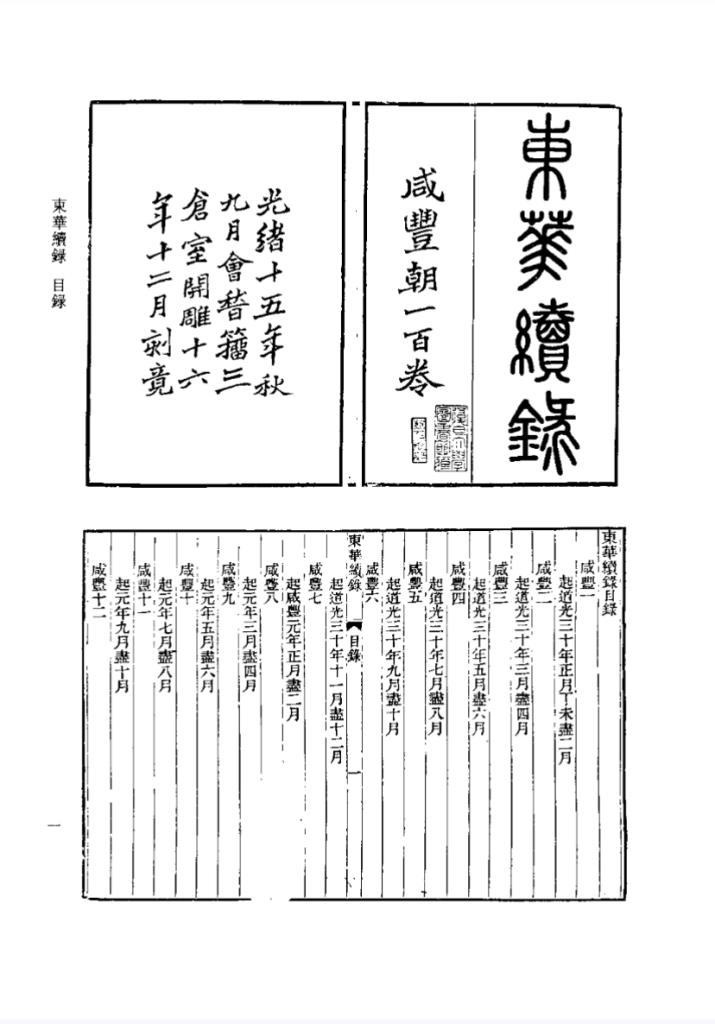 東華續録
咸豐朝一百卷
光緒十五年秋
九月會稽籀三
倉室開雕十六
年十二月刻竟
東華續録 目録
東華續錄目錄
咸豐一
起道光三十年正月丁未盡二月
咸豐二
起道光三十年三月盡四月
咸豐三
起道光三十年五月盡六月
咸豐四
起道光三十年七月盡八月
咸豐五
起道光三十年九月盡十月
咸豐六
東華續錄 目錄 一
起道光三十年十一月盡十二月
咸豐七
起咸豐元年正月盡二月
咸豐八
起元年三月盡四月
咸豐九
起元年五月盡六月
咸豐十
起元年七月盡八月
咸豐十一
起元年九月盡十月
咸豐十二
一